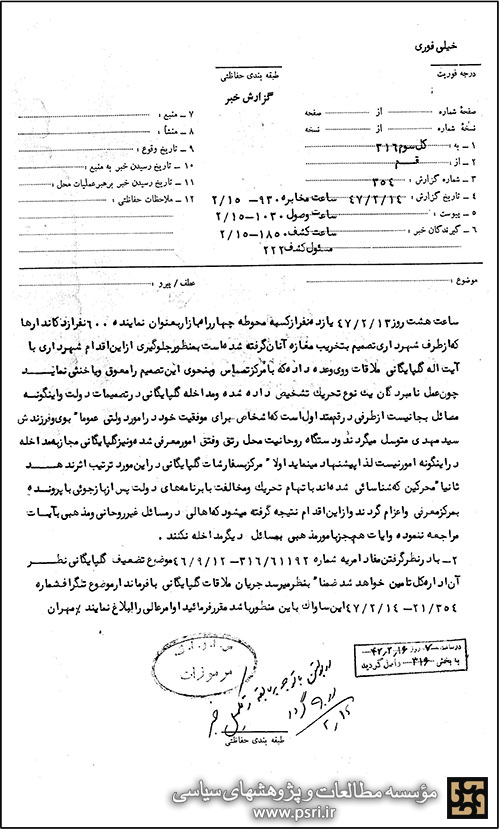 خیلی فوری
درجه فوریت
طبقه بندی حفاظتی
گزارش خبر
صفحهٔ شماره از صفحه
نسخهٔ شماره از نسخه
۱ ـ به : کل سوم ۳۱۶
۲ ـ از : قم
۳ ـ شماره گزارش : ۳۵۴
۴ ـ تاریخ گزارش : ۴۷/۲/۱۴
۵ ـ پیوست :
۶ ـ گیرندگان خبر :
ساعت مخابره ۹۳۰ـ ۲/۱۵
ساعت وصول ۱۰۳۰ـ ۲/۱۵
ساعت کشف ۱۸۵۰ـ ۲/۱۵
مسئول کشف ۲۲۲
۷ ـ منبع :
۸ ـ منشأ :
۹ ـ تاریخ وقوع :
۱۰ ـ تاریخ رسیدن خبر به منبع :
۱۱ ـ تاریخ رسیدن خبر برهبر عملیات محل :
۱۲ ـ ملاحظات حفاظتی :
موضوع : عطف / پیرو :
ساعت هشت روز ۴۷/۲/۱۳ یازده نفر از کسبه محوطه چهارراه بازار بعنوان نماینده ۶۰۰ نفر از دکاندارها
که از طرف شهرداری تصمیم بتخریب مغازه آنان گرفته شده است بمنظور جلوگیری از این اقدام شهرداری با
آیت اله گلپایگانی ملاقات و وی وعده داده که با مرکز تماس و بنحوی این تصمیم را معوق و یا خنثی نمایند
چون عمل نامبردگان یک نوع تحریک تشخیص داده شده و مداخله گلپایگانی در تصمیمات دولت و اینگونه
مسائل بجا نیست از طرفی در قم متداول است که اشخاص برای موفقیت خود در امور دولتی عموما" بوی و فرزندش
سید مهدی متوسل میگردند و دستگاه روحانیت محل رتق و فتق امور معرفی شده و نیز گلپایگانی مجاز به مداخله
در اینگونه امور نیست لذا پیشنهاد مینماید اولا" مرکز بسفارشات گلپایگانی در این مورد ترتیب اثر ندهد
ثانیا" محرکین که شناسائی شده اند باتهام تحریک و مخالفت با برنامه های دولت پس از بازجوئی با پرونده
بمرکز معرفی و اعزام گردند و از این اقدام نتیجه گرفته میشود که اهالی در مسائل غیر روحانی و مذهبی بآیات
مراجعه ننموده و آیات هم جز بامور مذهبی بمسائل دیگر مداخله نکنند .
۲ـ با در نظر گرفتن مفاد امریه شماره ۳۱۶/۶۱۱۹۲ـ ۴۶/۹/۱۲ موضوع تضعیف گلپایگانی نظر
آن اداره کل تامین خواهد شد ضمنا" بنظر میرسد جریان ملاقات گلپایگانی با فرماندار موضوع تلگراف شماره
۲۱/۳۵۴ـ ۴۷/۲/۱۴ این ساواک باین منظور باشد مقرر فرمائید اوامر عالی را ابلاغ نمایند مهران
مرموزات
در ساعت ۷ روز ۴۷،۲،۱۶
به بخش ۳۱۶ واصل گردید
۲/۱۵
طبقه بندی حفاظتی
مؤسسه مطالعات و پژوهشهای سیاسی
www.psri.ir